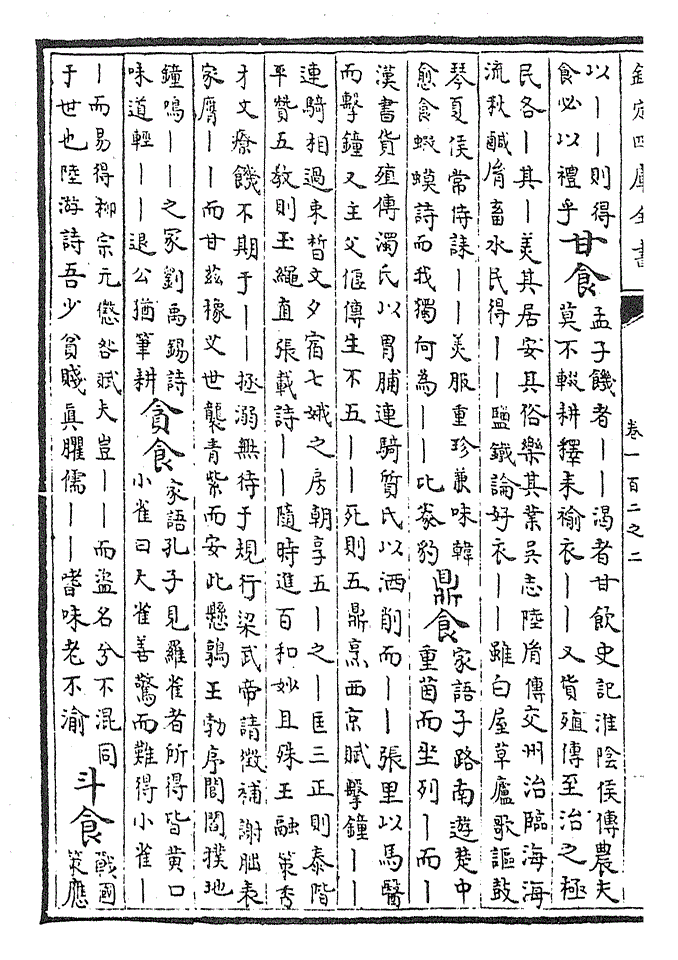 欽定四庫全書
卷一百二之二
以丨丨則得
食必以禮乎
甘食
孟子饑者丨丨渴者甘飲史記淮陰侯傳農夫
莫不輟耕釋耒褕衣丨丨又貨殖傳至治之極
民各丨其丨美其居安其俗樂其業吳志陸胤傳交州治臨海海
流秋鹹胤畜水民得丨丨鹽鐵論好衣丨丨雖白屋草廬歌謳鼓
琴夏侯常侍誄丨丨美服重珍兼味韓
愈食蝦蟆詩而我獨何為丨丨比豢豹
鼎食
家語子路南遊楚中
重茵而坐列丨而丨
漢書貨殖傳濁氏以胃脯連騎質氏以洒削而丨丨張里以馬醫
而擊鐘又主父偃傳生不五丨丨死則五鼎烹西京賦擊鐘丨丨
連騎相過束晳文夕宿七娥之房朝享五丨之丨匡三正則泰階
平贊五教則玉繩直張載詩丨丨隨時進百和妙且殊王融策秀
才文療饑不期于丨丨拯溺無待于規行梁武帝請徵補謝朏表
家膺丨丨而甘茲橡艾世襲青紫而安此懸鶉王勃序閭閻撲地
鐘鳴丨丨之家劉禹錫詩
味道輕丨丨退公猶筆耕
貪食
家語孔子見羅雀者所得皆黃口
小雀曰大雀善驚而難得小雀丨
丨而易得柳宗元懲咎賦夫豈丨丨而盜名兮不混同
于世也陸游詩吾少貧賤真臞儒丨丨嗜味老不渝
斗食
戰國
策應